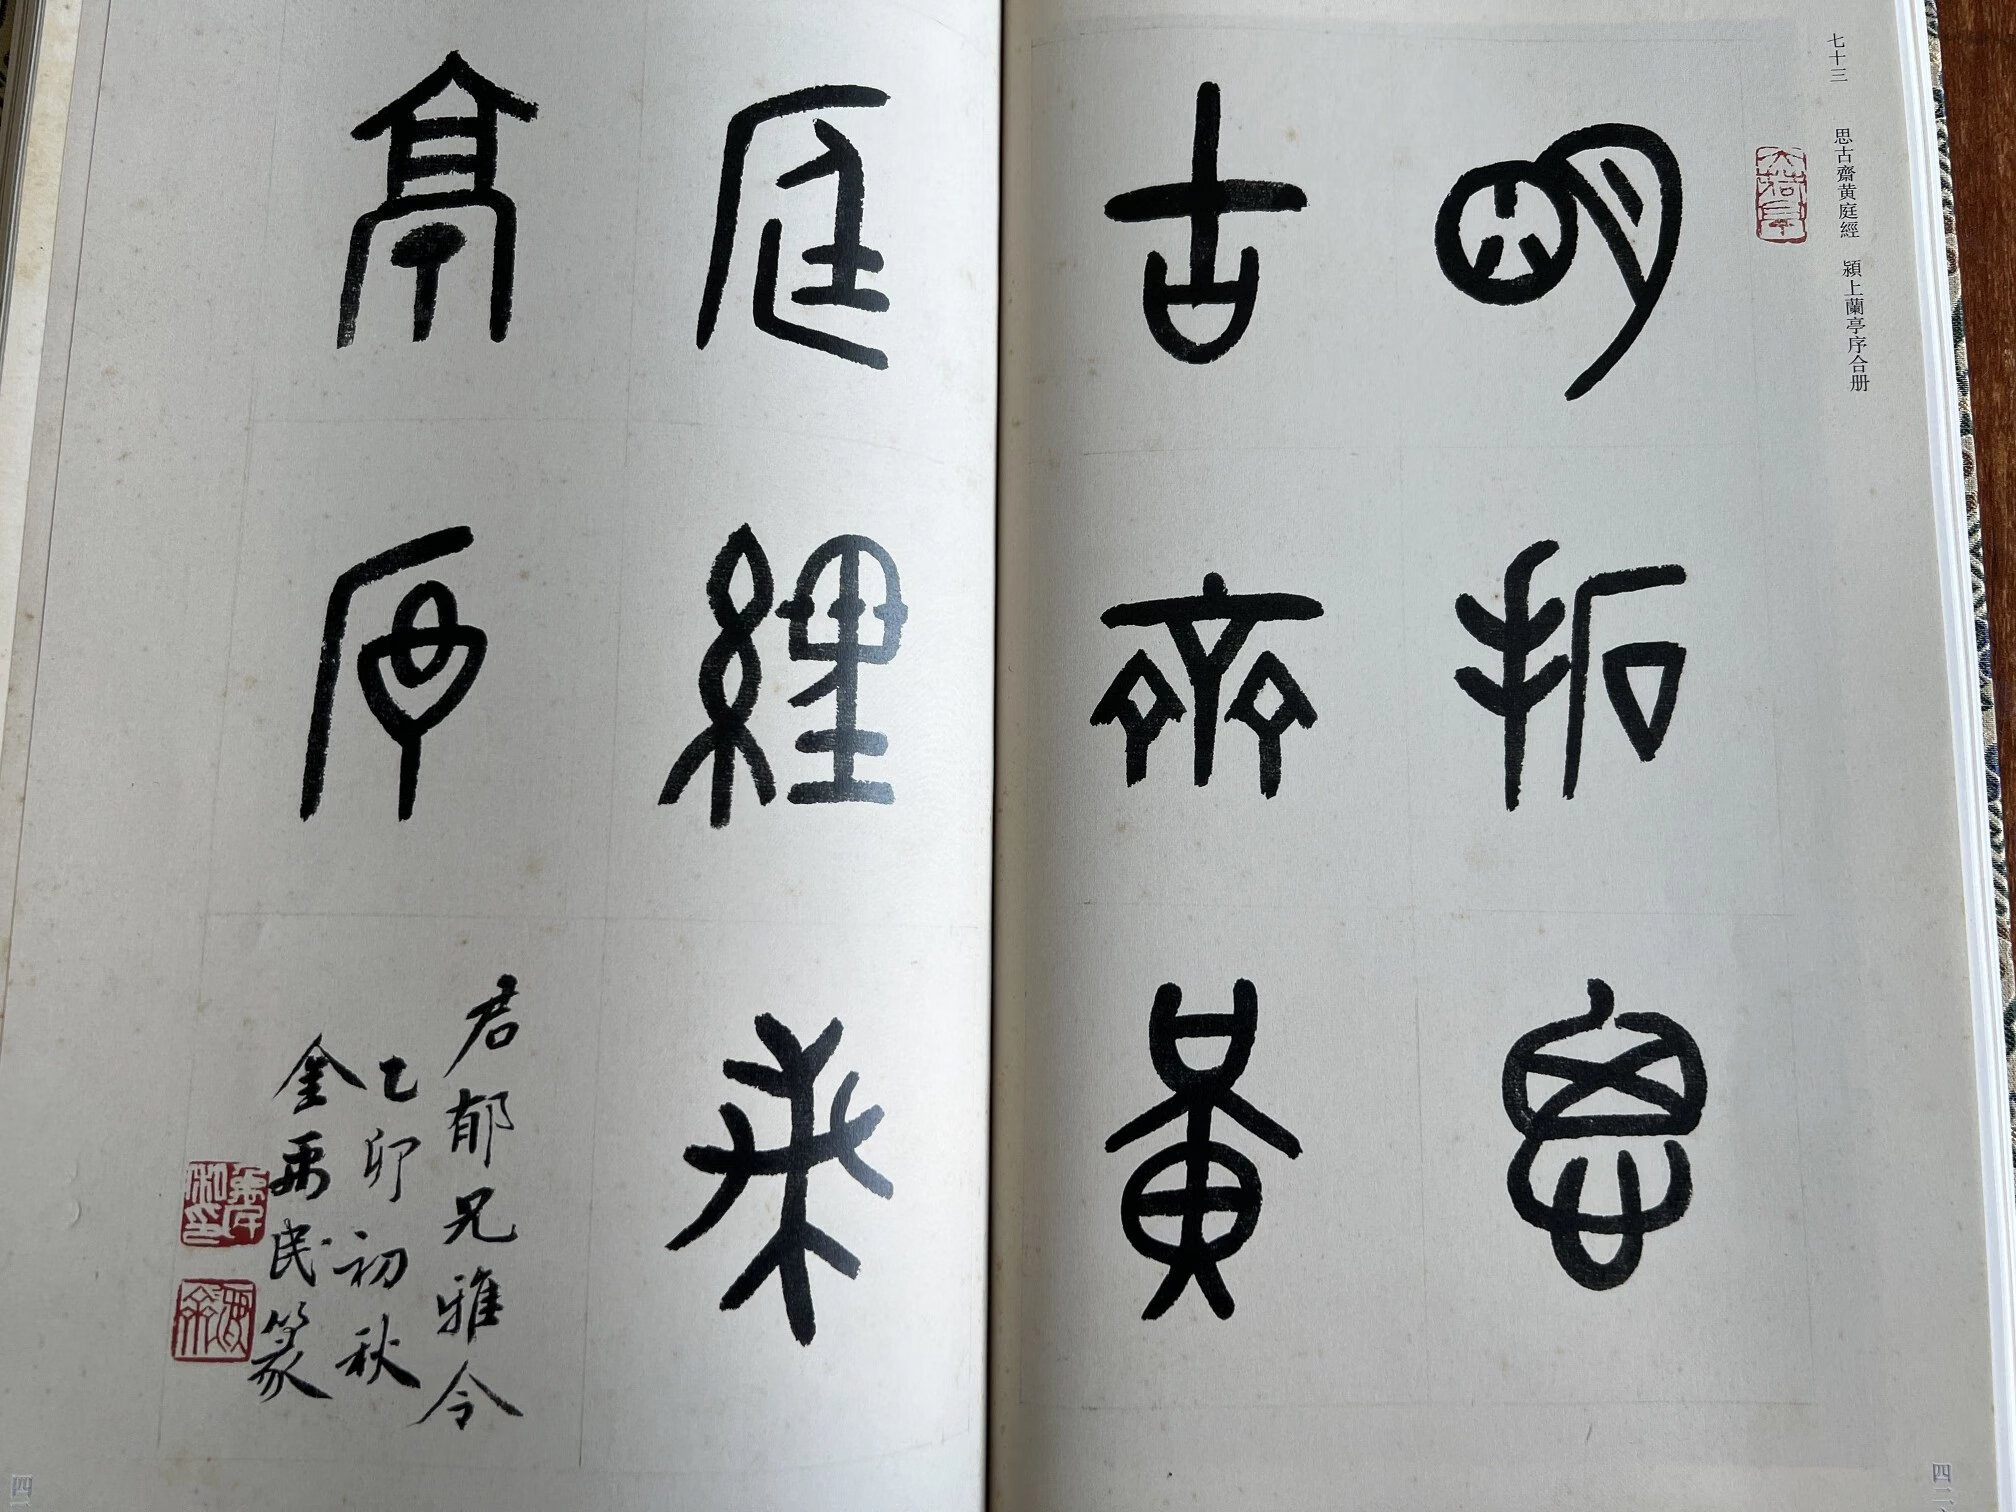 七十三 思古齋黃庭經 潁上蘭亭序合册
明拓思
古齊黃
庭經
亭序
君郁兄雅令
乙卯初秋
金禹民篆